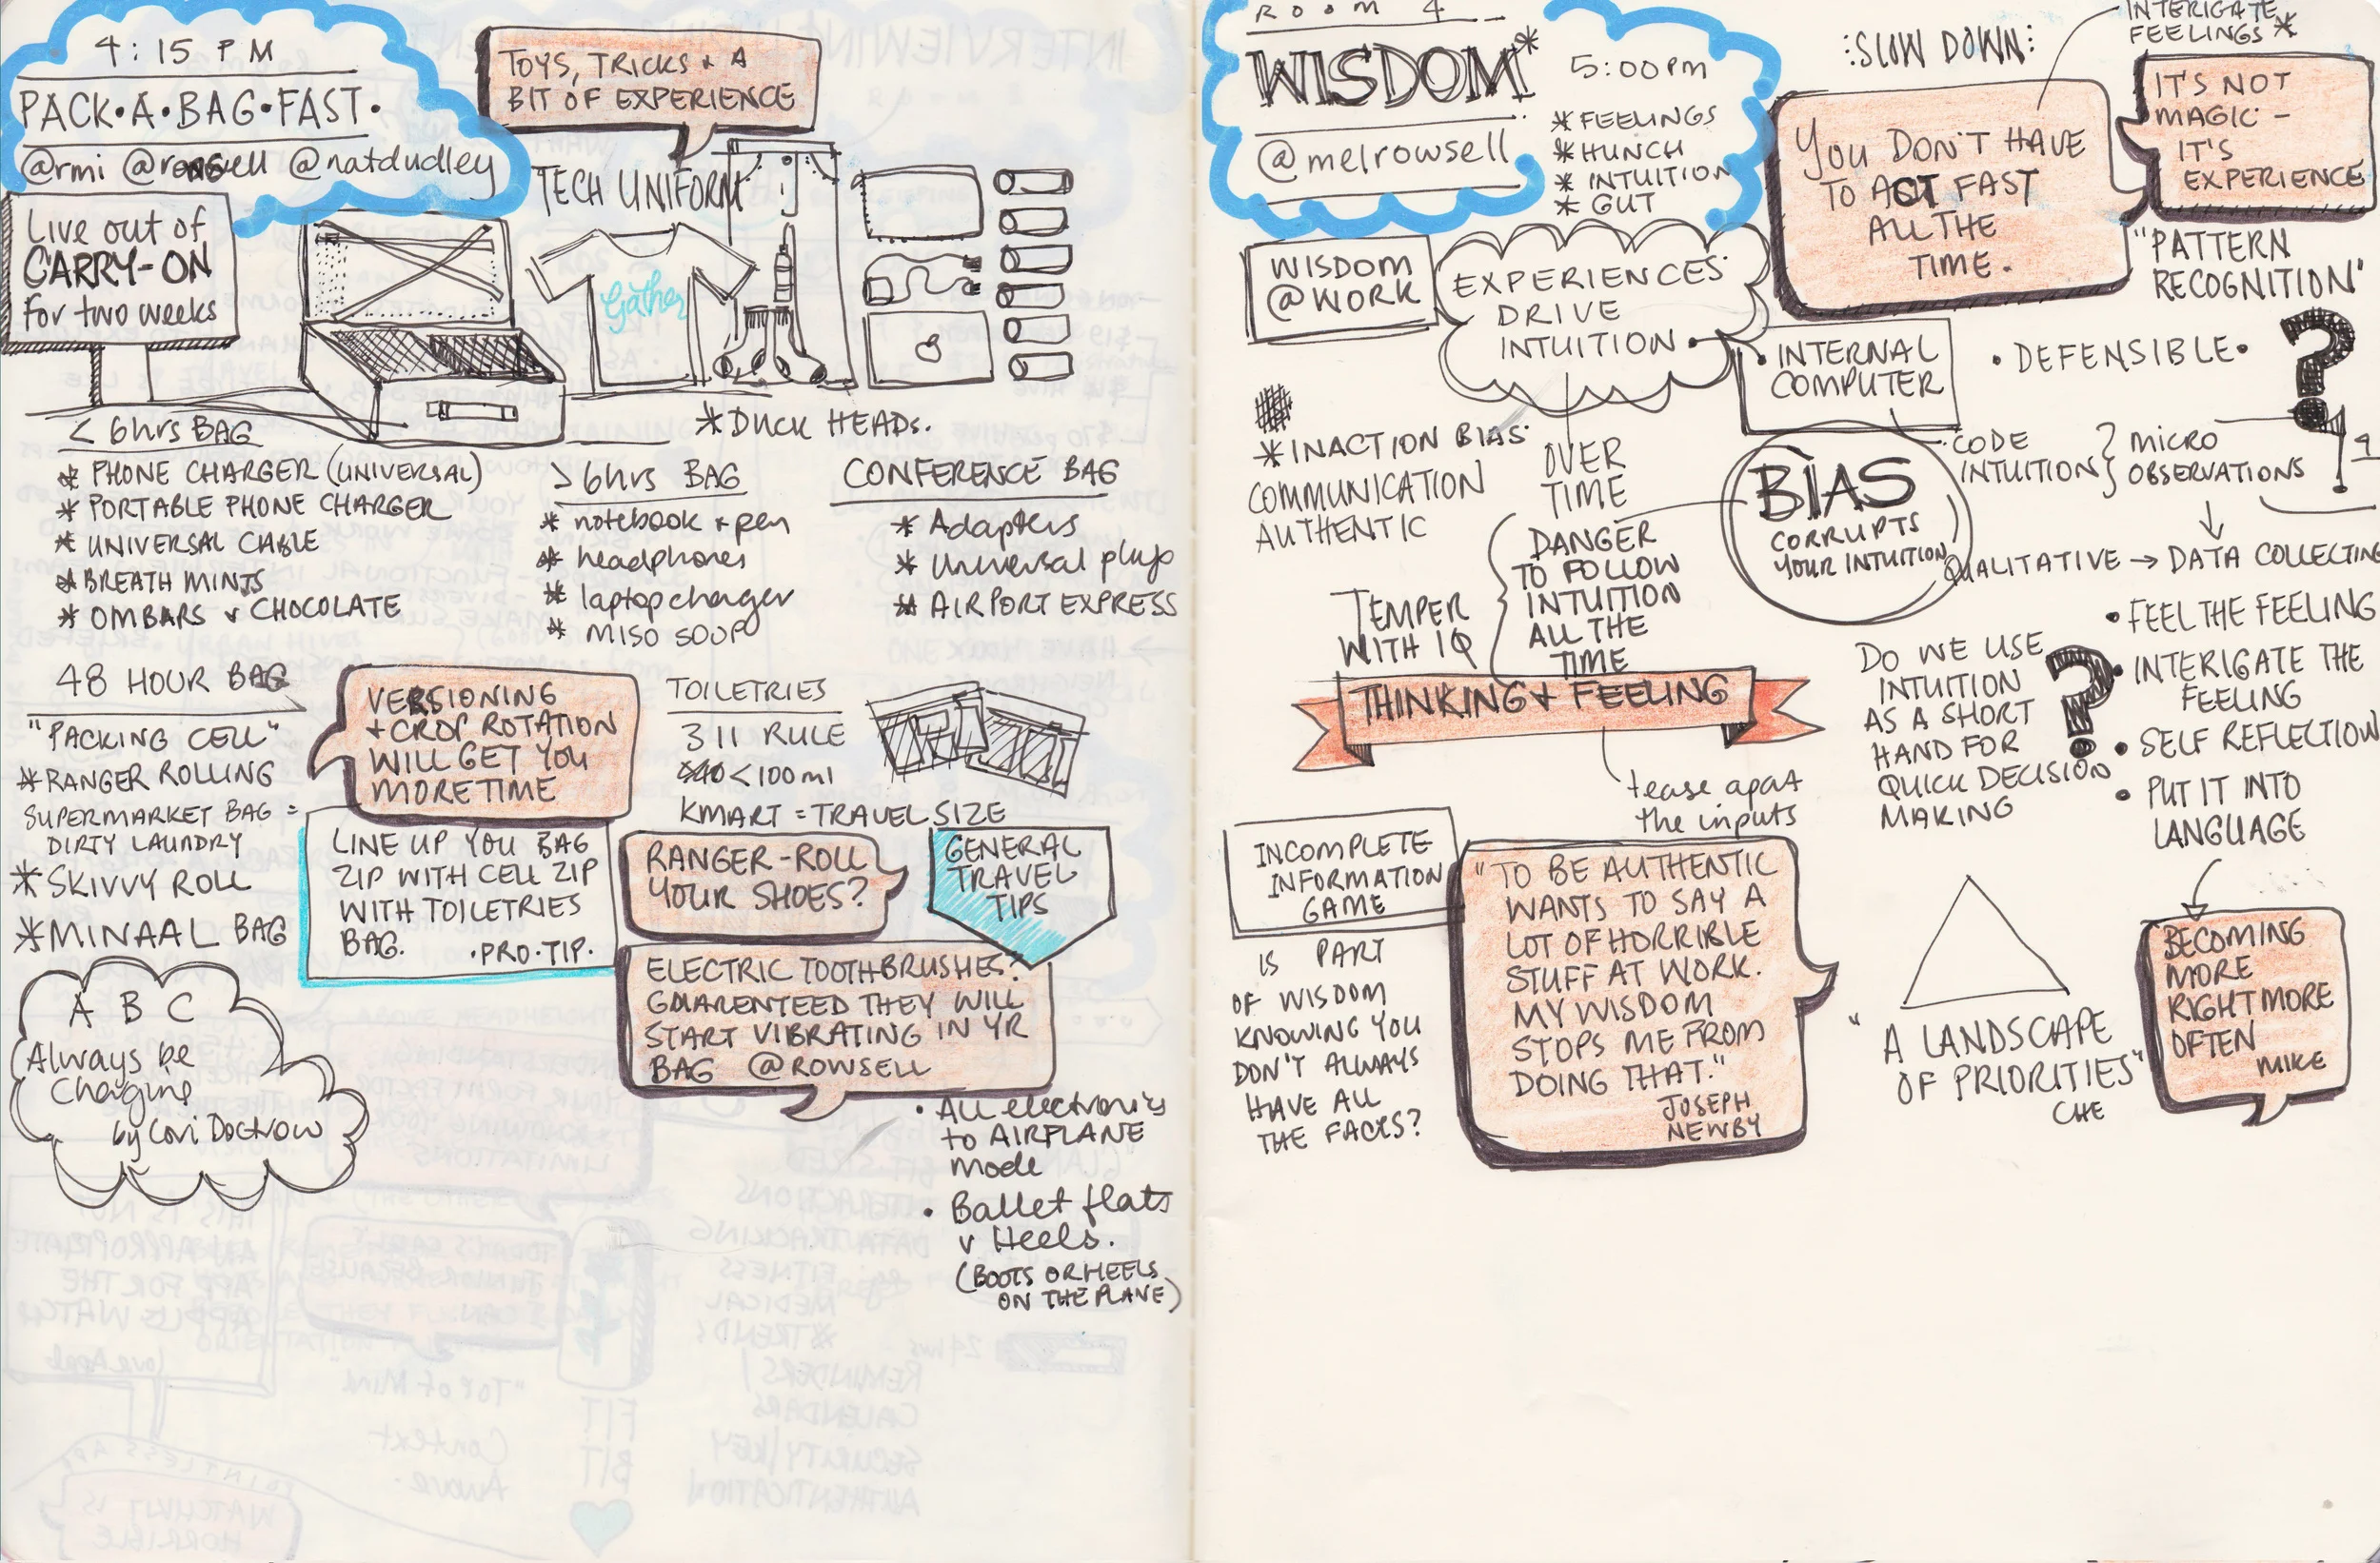 4:15 PM
PACK·A·BAG·FAST·
@rmi @rowsell @natdudley
TOYS, TRICKS + A
BIT OF EXPERIENCE
Live out of
CARRY-ON
for two weeks
TECH UNIFORM
Gather
* DUCK HEADS.
< 6hrs BAG
* PHONE CHARGER (UNIVERSAL)
* PORTABLE PHONE CHARGER
* UNIVERSAL CABLE
* BREATH MINTS
* OMBARS + CHOCOLATE
> 6hrs BAG
* notebook + pen
* headphones
* laptop charger
* MISO SOUP
CONFERENCE BAG
* Adapters
* Universal plugs
* AIRPORT EXPRESS
48 HOUR BAG
"PACKING CELL"
* RANGER ROLLING
SUPERMARKET BAG =
DIRTY LAUNDRY
* SKIVVY ROLL
* MINAAL BAG
VERSIONING
+ CROP ROTATION
WILL GET YOU
MORE TIME
LINE UP YOU BAG
ZIP WITH CELL ZIP
WITH TOILETRIES
BAG. ·PRO·TIP·
TOILETRIES
311 RULE
< 100ml
KMART = TRAVEL SIZE
RANGER-ROLL
YOUR SHOES?
GENERAL
TRAVEL
TIPS
ELECTRIC TOOTHBRUSHES?
GUARENTEED THEY WILL
START VIBRATING IN YR
BAG @ROWSELL
A B C
Always be
Charging
by Cori Doctrow
· All electronics
to AIRPLANE
mode
· Ballet flats
v Heels.
(BOOTS OR HEELS
ON THE PLANE)
ROOM 4
WISDOM*
@melrowsell
5:00PM
* FEELINGS
* HUNCH
* INTUITION
* GUT
:SLOW DOWN:
INTERIGATE
FEELINGS *
YOU DON'T HAVE
TO ACT FAST
ALL THE
TIME.
IT'S NOT
MAGIC -
IT'S
EXPERIENCE
"PATTERN
RECOGNITION"
WISDOM
@ WORK
EXPERIENCES
DRIVE
INTUITION
· INTERNAL
COMPUTER
· DEFENSIBLE ·
?
* INACTION BIAS
COMMUNICATION
AUTHENTIC
OVER
TIME
DANGER
TO FOLLOW
INTUITION
ALL THE
TIME
TEMPER
WITH IQ
BIAS
CORRUPTS
YOUR INTUITION
CODE
INTUITION }
MICRO
OBSERVATIONS
QUALITATIVE → DATA COLLECTING
· FEEL THE FEELING
· INTERIGATE THE
FEELING
· SELF REFLECTION
· PUT IT INTO
LANGUAGE
DO WE USE
INTUITION
AS A SHORT
HAND FOR
QUICK DECISION
MAKING
?
THINKING + FEELING
tease apart
the inputs
INCOMPLETE
INFORMATION
GAME
IS PART
OF WISDOM
KNOWING YOU
DON'T ALWAYS
HAVE ALL
THE FACTS?
"TO BE AUTHENTIC
WANTS TO SAY A
LOT OF HORRIBLE
STUFF AT WORK.
MY WISDOM
STOPS ME FROM
DOING THAT."
JOSEPH
NEWBY
"A LANDSCAPE
OF PRIORITIES"
CHE
BECOMING
MORE
RIGHT MORE
OFTEN
MIKE